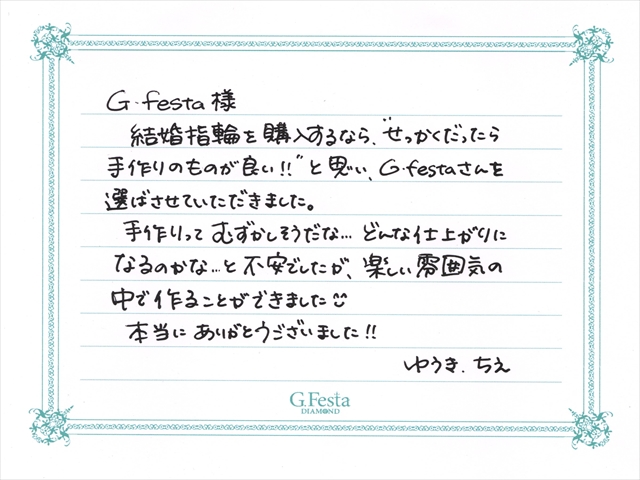 G.festa 様
結婚指輪を購入するなら、"せっかくだったら
手作りのものが良い!!"と思い、G.festaさんを
選ばさせていただきました。
手作りって むずかしそうだな… どんな仕上がりに
なるのかな…と不安でしたが、楽しい雰囲気の
中で作ることができました☺
本当に ありがとうございました!!
ゆうき. ちえ
G.Festa
DIAMOND